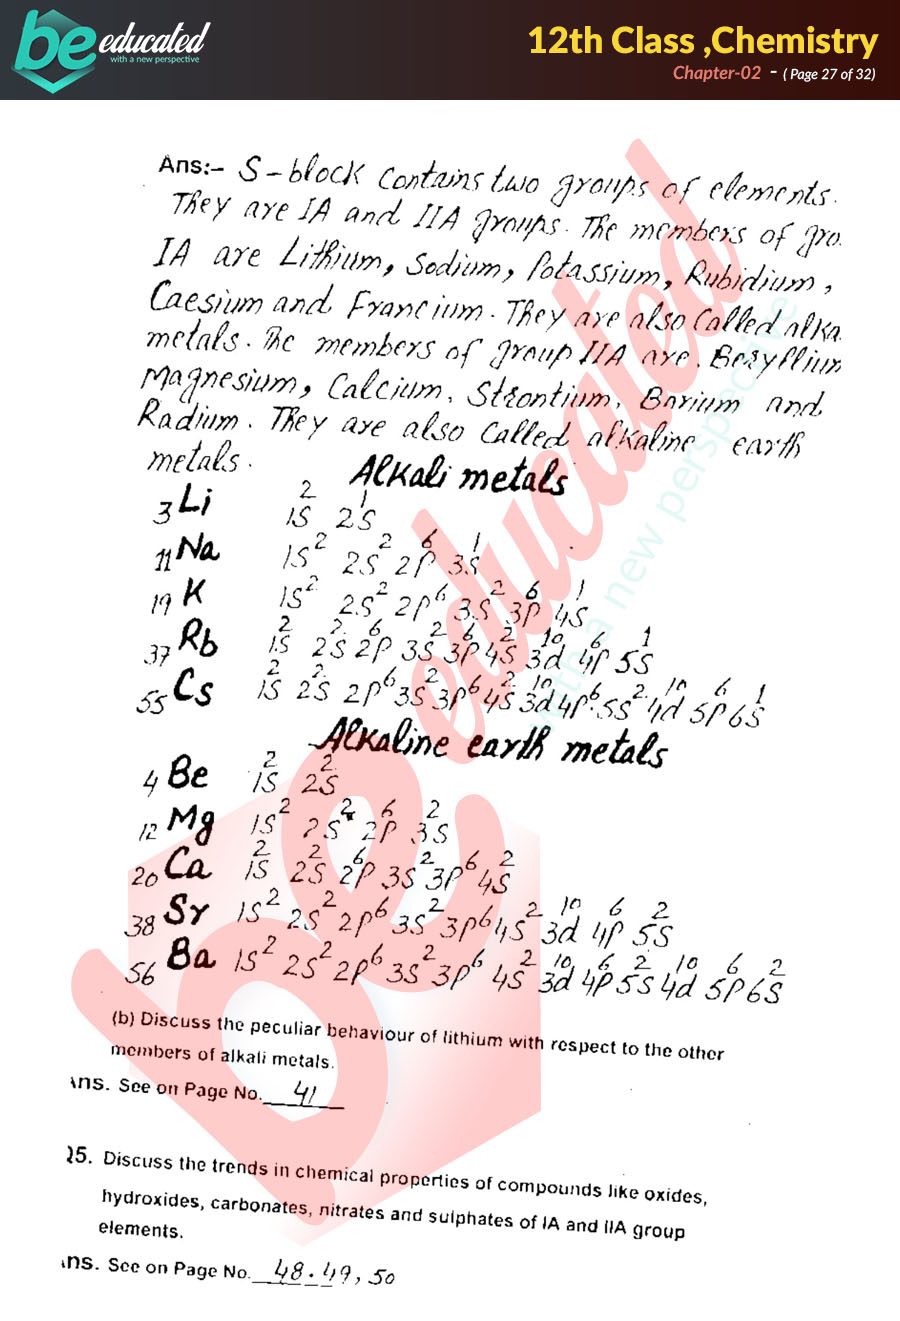 be educated
with a new perspective
12th Class ,Chemistry
Chapter-02 - ( Page 27 of 32)
Ans:- S-block contains two groups of elements.
They are IA and IIA groups. The members of gro
IA are Lithium, Sodium, Potassium, Rubidium,
Caesium and Francium. They are also Called alka
metals. The members of group IIA are, Beryllium
Magnesium, Calcium, Strontium, Barium and
Radium. They are also Called alkaline earth
metals.
Alkali metals
₃Li 1s² 2s¹
₁₁Na 1s² 2s² 2p⁶ 3s¹
₁₉K 1s² 2s² 2p⁶ 3s² 3p⁶ 4s¹
₃₇Rb 1s² 2s² 2p⁶ 3s² 3p⁶ 4s² 3d¹⁰ 4p⁶ 5s¹
₅₅Cs 1s² 2s² 2p⁶ 3s² 3p⁶ 4s² 3d¹⁰ 4p⁶ 5s² 4d¹⁰ 5p⁶ 6s¹
Alkaline earth metals
₄Be 1s² 2s²
₁₂Mg 1s² 2s² 2p⁶ 3s²
₂₀Ca 1s² 2s² 2p⁶ 3s² 3p⁶ 4s²
₃₈Sr 1s² 2s² 2p⁶ 3s² 3p⁶ 4s² 3d¹⁰ 4p⁶ 5s²
₅₆Ba 1s² 2s² 2p⁶ 3s² 3p⁶ 4s² 3d¹⁰ 4p⁶ 5s² 4d¹⁰ 5p⁶ 6s²
(b) Discuss the peculiar behaviour of lithium with respect to the other
members of alkali metals.
Ans. See on Page No. 41
25. Discuss the trends in chemical properties of compounds like oxides,
hydroxides, carbonates, nitrates and sulphates of IA and IIA group
elements.
Ans. See on Page No. 48.49, 50
be educated
with a new perspective